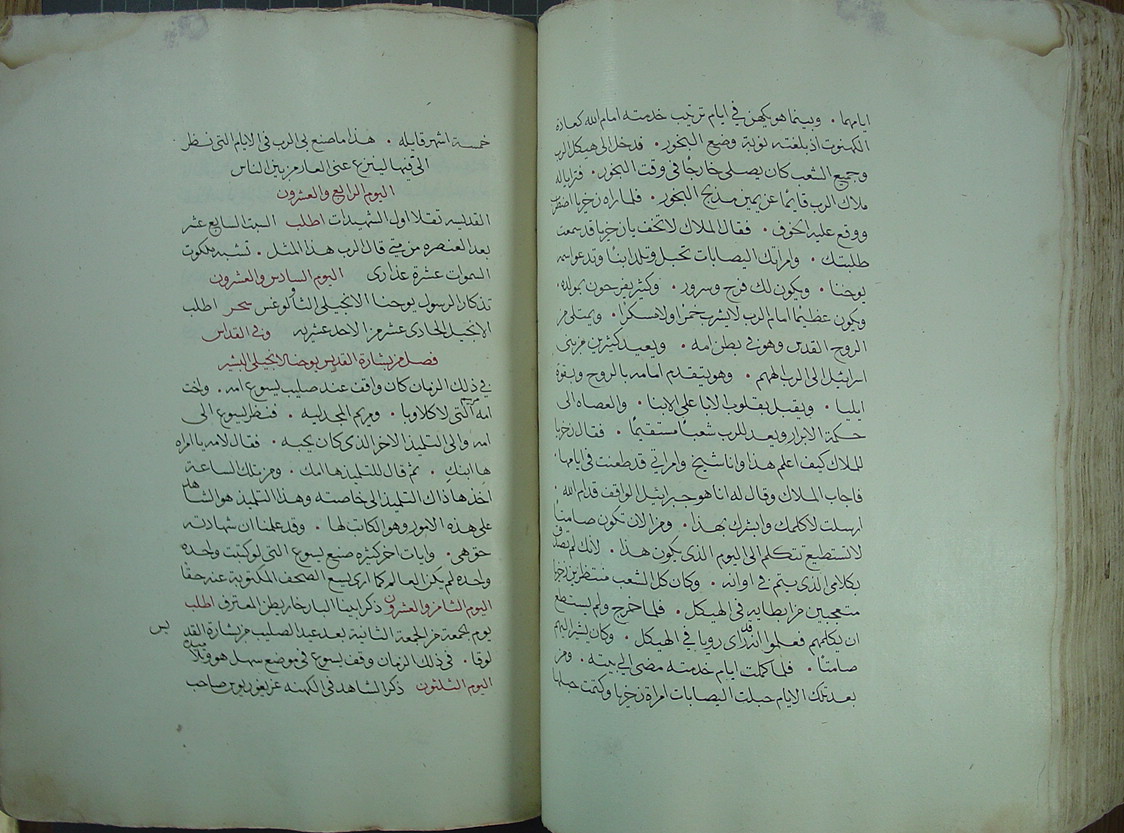 ايامهما . وبينما هو يكهن في ايام ترتيب خدمته امام الله كعادة
الكهنوت اذ بلغته نوبة وضع البخور . فدخل الى هيكل الرب
وجميع الشعب كان يصلى خارجًا في وقت البخور . فترايا له
ملاك الرب قايمًا عن يمين مذبح البخور . فلما راه زخريا اضطرب
ووقع عليه الخوف . فقال الملاك لا تخف يا زخريا قد سمعت
طلبتك . وامراتك اليصابات تحبل وتلد ابنا وتدعو اسمه
يوحنا . ويكون لك فرح وسرور . وكثير يفرحون بمولده .
ويكون عظيمًا امام الرب لا يشرب خمرًا ولا مسكرًا . ويمتلى من
الروح القدس وهو في بطن امه . ويعيد كثيرين من بنى
اسرائيل الى الرب الههم . وهو يتقدم امامه بالروح وبقوة
ايليا . ويقبل بقلوب الابا على الابنا . والعصاه الى
حكمة الابرار ويعد للرب شعبًا مستقيمًا . فقال زخريا
للملاك كيف اعلم هذا وانا شيخ وامراتي قد طعنت في ايامها .
فاجاب الملاك وقال له انا هو جبرائيل الواقف قدام الله .
ارسلت لاكلمك وابشرك بهذا . ومن الان تكون صامتًا
لا تستطيع تتكلم الى اليوم الذي يكون هذا . لانك لم تصدق
بكلامي الذي يتم في اوانه . وكان كل الشعب منتظرين زخريا
متعجبين من ابطايه في الهيكل . فلما خرج ولم يستطع
ان يكلمهم فعلموا انه قد راى رويا في الهيكل . وكان يشير اليهم
صامتًا . فلما كملت ايام خدمته مضى الى بيته . ومن
بعد تلك الايام حبلت اليصابات امراة زخريا وكتمت حبلها
خمسة اشهر قايله . هذا ما صنع بى الرب في الايام التى نظر
الى فيها لينزع عنى العار من بين الناس
اليوم الرابع والعشرون
القديسه تقلا اول الشهيدات اطلب السبت السابع عشر
بعد العنصره من متى قال الرب هذا المثل . تشبه ملكوت
السموات عشرة عذارى اليوم السادس والعشرون
تذكار الرسول يوحنا الانجيلى الثاالوغس سحر اطلب
الانجيل الحادى عشر من الاحد عشريه وفي القداس
فصل من بشارة القديس يوحنا الانجيلى البشير
في ذلك الزمان كان واقف عند صليب يسوع امه . واخت
امه مريم التى لاكلاوبا . ومريم المجدليه . فنظر يسوع الى
امه والى التلميذ الاخر الذى كان يحبه . فقال لامه يا امراه
ها ابنك . ثم قال للتلميذ ها امك . ومن تلك الساعة
اخذها ذاك التلميذ الى خاصته وهذا التلميذ هو الشاهد
على هذه الامور وهو الكاتب لها . وقد علمنا ان شهادته
حق هى . وايات اخر كثيره صنع يسوع التى لو كتبت واحده
واحده لم يكن العالم كما ارى يسع الصحف المكتوبة عنه حقا
اليوم الثامن والعشرون ذكر ابينا البار خاريطن المعترف اطلب
يوم الجمعة من الجمعة الثانية بعد عيد الصليب من بشارة القديس
لوقا . في ذلك الزمان وقف يسوع في موضع سهل هو وتلاميذه
اليوم الثلثون ذكر الشاهد في الكهنه غريغوريوس صاحب